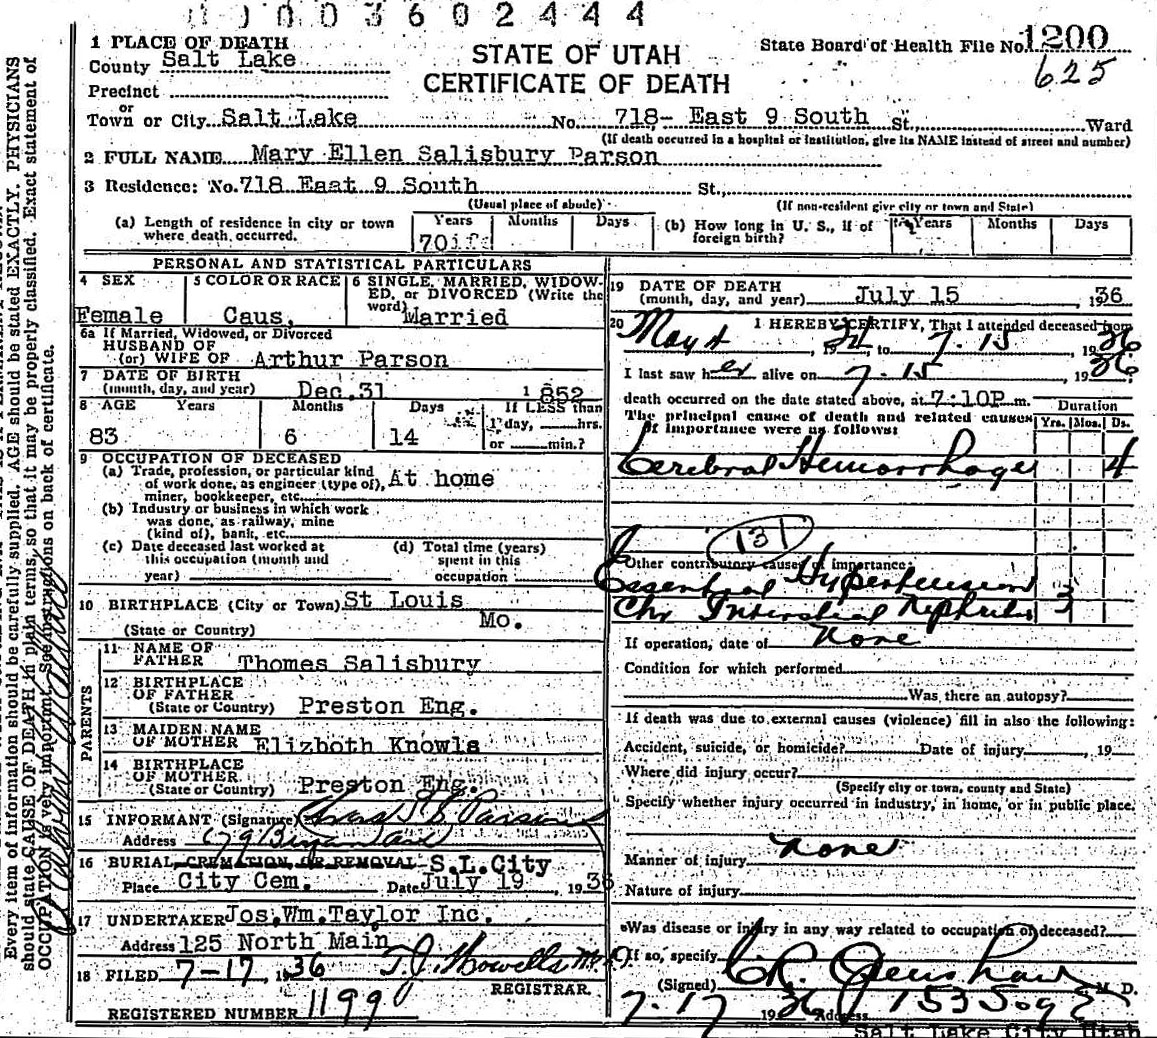 0003602444
1 PLACE OF DEATH
County Salt Lake
STATE OF UTAH
CERTIFICATE OF DEATH
State Board of Health File No. 1200
625
Precinct
or
Town or City Salt Lake No. 718- East 9 South St., Ward
(If death occurred in a hospital or institution, give its NAME instead of street and number)
2 FULL NAME Mary Ellen Salisbury Parson
3 Residence: No. 718 East 9 South St.,
(Usual place of abode) (If non-resident give city or town and State)
(a) Length of residence in city or town where death occurred. Years Months Days
70
(b) How long in U. S., if of foreign birth? Years Months Days
PERSONAL AND STATISTICAL PARTICULARS
4 SEX
Female
5 COLOR OR RACE
Caus.
6 SINGLE, MARRIED, WIDOW-
ED, or DIVORCED (Write the
word) Married
6a If Married, Widowed, or Divorced
HUSBAND OF
(or) WIFE OF Arthur Parson
7 DATE OF BIRTH
(month, day, and year) Dec. 31 1852
8 AGE Years Months Days If LESS than
1 day, hrs.
or min.?
83 6 14
9 OCCUPATION OF DECEASED
(a) Trade, profession, or particular kind
of work done, as engineer (type of),
miner, bookkeeper, etc. At home
(b) Industry or business in which work
was done, as railway, mine
(kind of), bank, etc.
(c) Date deceased last worked at
this occupation (month and
year)
(d) Total time (years)
spent in this
occupation
10 BIRTHPLACE (City or Town) St Louis
(State or Country) Mo.
PARENTS
11 NAME OF
FATHER Thomes Salisbury
12 BIRTHPLACE
OF FATHER
(State or Country) Preston Eng.
13 MAIDEN NAME
OF MOTHER Elizboth Knowls
14 BIRTHPLACE
OF MOTHER
(State or Country) Preston Eng.
15 INFORMANT (Signature) Parsons
Address
16 BURIAL, CREMATION, OR REMOVAL S.L.City
Place City Cem. Date July 19, 1936
17 UNDERTAKER Jos.Wm.Taylor Inc.
Address 125 North Main
18 FILED 7-17, 1936 T.J. Howells M.D.
REGISTRAR
REGISTERED NUMBER 1199
19 DATE OF DEATH
(month, day, and year) July 15, 1936
20 I HEREBY CERTIFY, That I attended deceased from
May 1, to 7-15, 1936
I last saw her alive on 7-15, 1936
death occurred on the date stated above, at 7:10P m.
The principal cause of death and related causes
of importance were as follows:
Duration
Yrs. Mos. Ds.
Cerebral Hemorrhage 4
131
Other contributory causes of importance:
Essential Hypertension
Chr Interstitial Nephritis 3
If operation, date of None
Condition for which performed
Was there an autopsy?
If death was due to external causes (violence) fill in also the following:
Accident, suicide, or homicide? Date of injury, 19
Where did injury occur?
(Specify city or town, county and State)
Specify whether injury occurred in industry, in home, or in public place.
Manner of injury None
Nature of injury
Was disease or injury in any way related to occupation of deceased?
If so, specify
(Signed) M. D.
7-17 1936 Address 153 So 9 E
Salt Lake City Utah
Every item of information should be carefully supplied. AGE should be stated EXACTLY. PHYSICIANS
should state CAUSE OF DEATH in plain terms, so that it may be properly classified. Exact statement of
OCCUPATION is very important. See instructions on back of certificate.